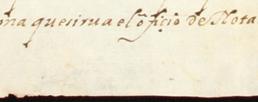 ma que sirua el oficio de Nota